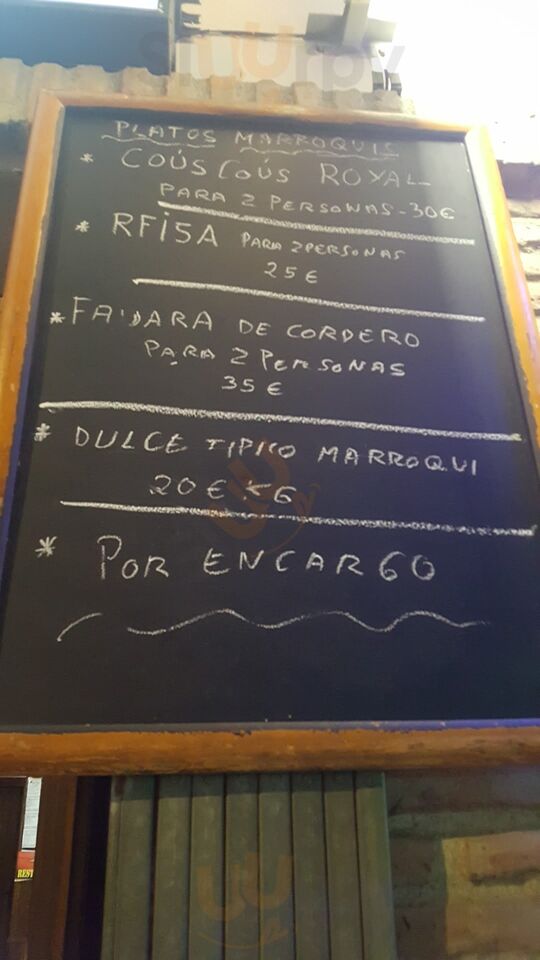 PLATOS MARROQUIS
* COÚSCOÚS ROYAL
PARA 2 PERSONAS-30€
* RFISA PARA 2 PERSONAS
25€
* FA'DARA DE CORDERO
PARA 2 PERSONAS
35€
* DULCE TIPICO MARROQUI
20€ KG
* POR ENCARGO
REST